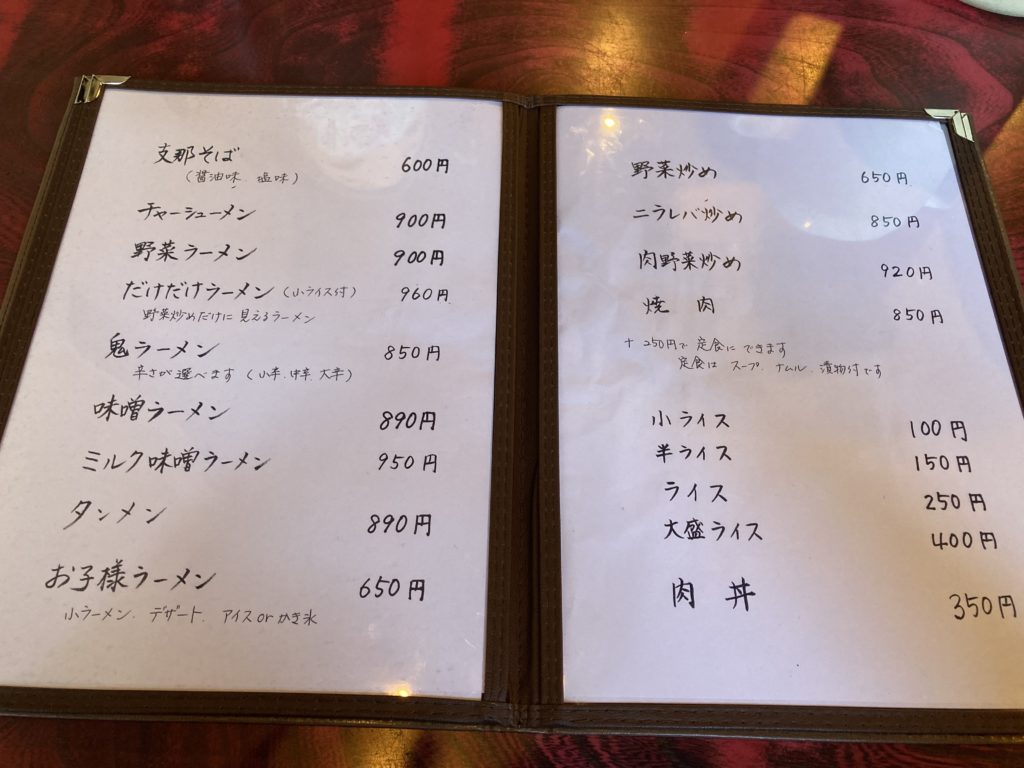 支那そば 600円
（醤油味、塩味）
チャーシューメン 900円
野菜ラーメン 900円
だけだけラーメン（小ライス付） 960円
野菜炒めだけに見えるラーメン
鬼ラーメン 850円
辛さが選べます（小辛、中辛、大辛）
味噌ラーメン 890円
ミルク味噌ラーメン 950円
タンメン 890円
お子様ラーメン 650円
小ラーメン、デザート、アイスorかき氷
野菜炒め 650円
ニラレバ炒め 850円
肉野菜炒め 920円
焼肉 850円
+250円で定食にできます
定食はスープ、ナムル、漬物付です
小ライス 100円
半ライス 150円
ライス 250円
大盛ライス 400円
肉丼 350円